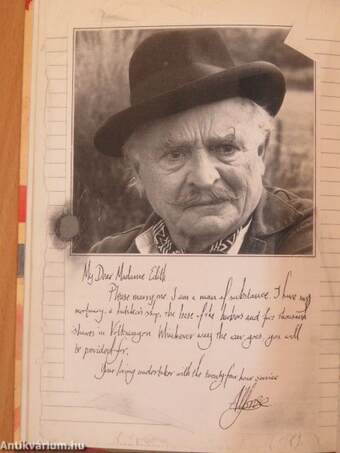 My Dear Madame Edith
Please marry me. I am a man of substance. I have my
mortuary, a butcher's shop, the lease of the and five thousand
shares in Volkswagen. Whichever way the war goes, you will
be provided for.
Your loving undertaker with the twenty four hour service
Alfonse
Antikvárium.hu